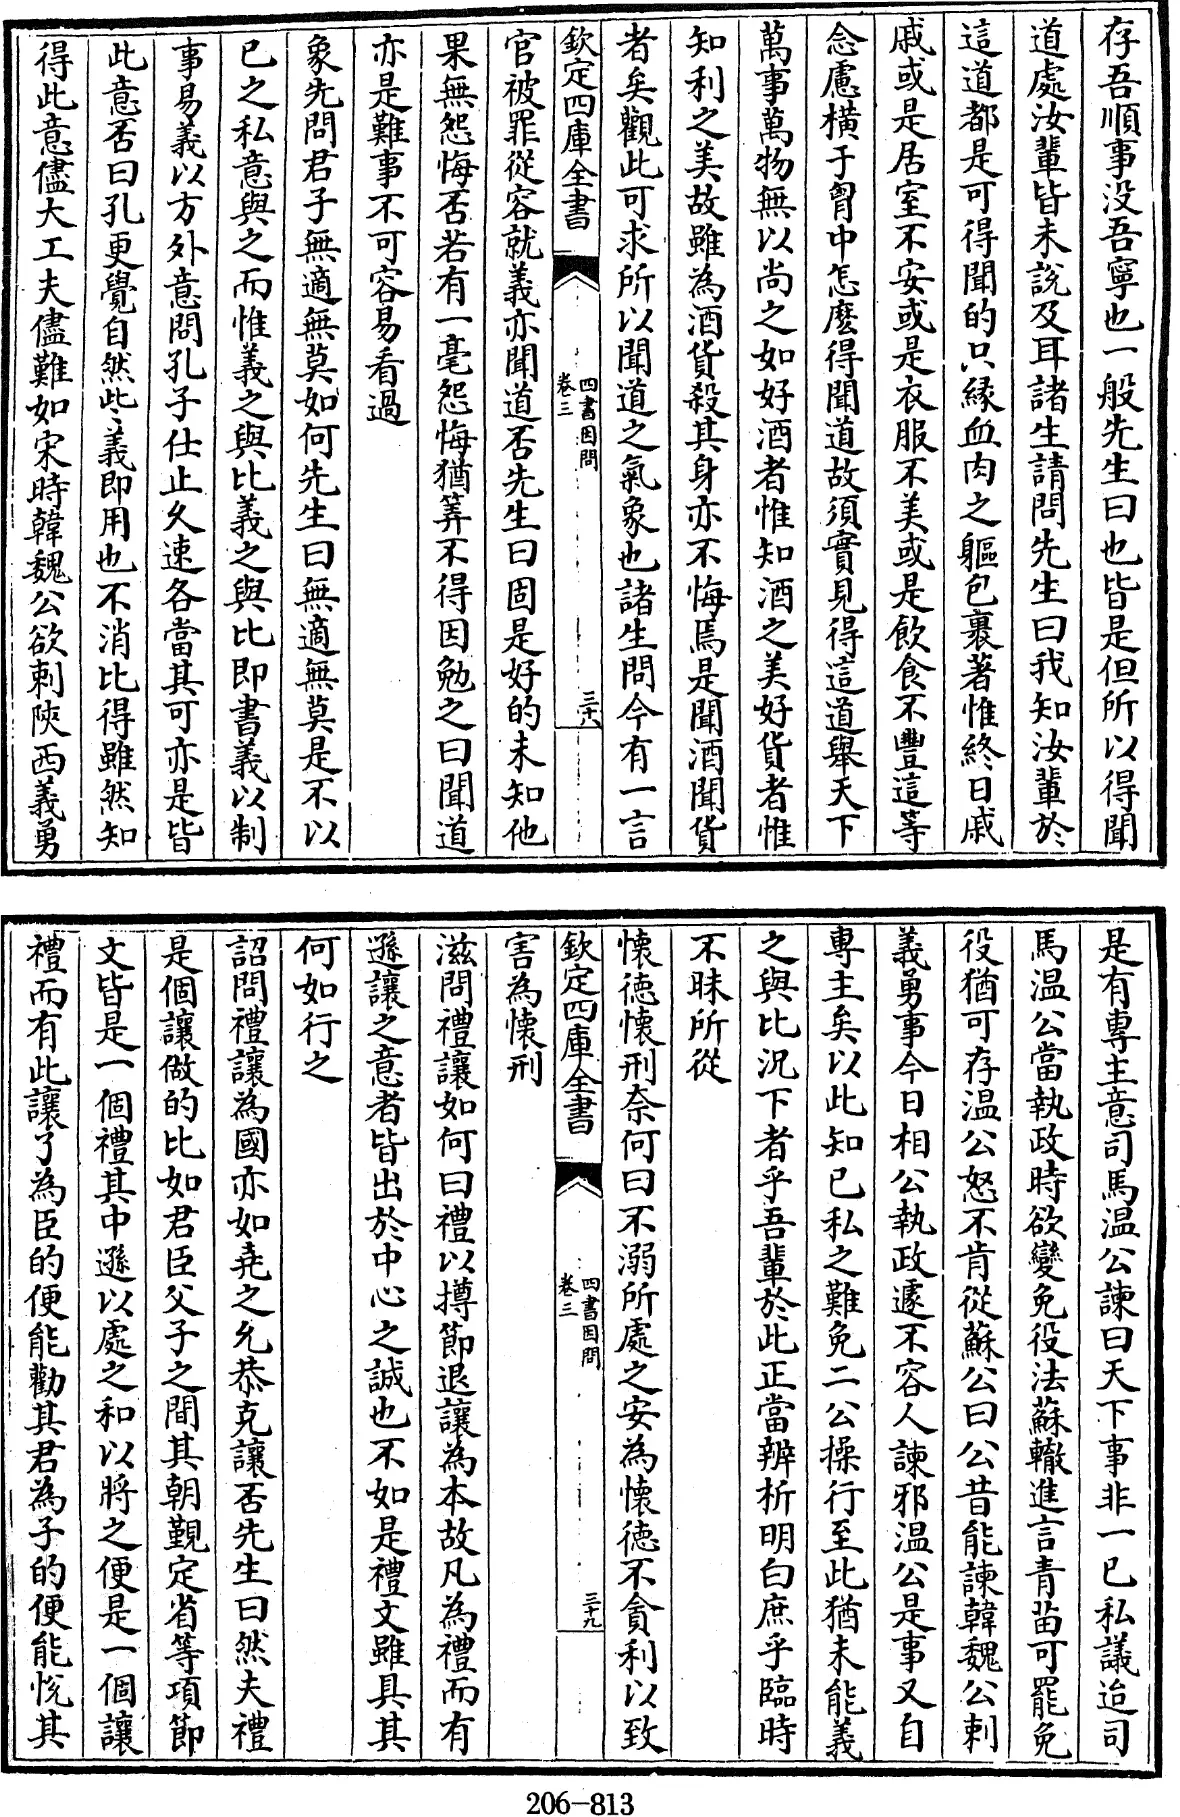 存吾順事没吾寧也一般先生曰也皆是但所以得聞
道處汝輩皆未説及耳諸生請問先生曰我知汝輩於
這道都是可得聞的只縁血肉之軀包裹著惟終日戚
戚或是居室不安或是衣服不美或是飲食不豐這等
念慮横于胷中怎麽得聞道故須實見得這道舉天下
萬事萬物無以尚之如好酒者惟知酒之美好貨者惟
知利之美故雖為酒貨殺其身亦不悔焉是聞酒聞貨
者矣觀此可求所以聞道之氣象也諸生問今有一言
欽定四庫全書
四書因問
卷三
三十八
官被罪從容就義亦聞道否先生曰固是好的未知他
果無怨悔否若有一毫怨悔猶筭不得因勉之曰聞道
亦是難事不可容易看過
象先問君子無適無莫如何先生曰無適無莫是不以
已之私意與之而惟義之與比義之與比即書義以制
事易義以方外意問孔子仕止久速各當其可亦是皆
此意否曰孔更覺自然此義即用也不消比得雖然知
得此意儘大工夫儘難如宋時韓魏公欲刺陜西義勇
是有專主意司馬温公諫曰天下事非一已私議迨司
馬温公當執政時欲變免役法蘇轍進言青苗可罷免
役猶可存温公怒不肯從蘇公曰公昔能諫韓魏公刺
義勇事今日相公執政遽不容人諫邪温公是事又自
專主矣以此知已私之難免二公操行至此猶未能義
之與比况下者乎吾輩於此正當辨析明白庶乎臨時
不昧所從
懐徳懐刑奈何曰不溺所處之安為懐徳不貪利以致
欽定四庫全書
四書因問
卷三
三十九
害為懐刑
滋問禮讓如何曰禮以撙節退讓為本故凡為禮而有
遜讓之意者皆出於中心之誠也不如是禮文雖具其
何如行之
詔問禮讓為國亦如堯之允恭克讓否先生曰然夫禮
是個讓做的比如君臣父子之間其朝覲定省等項節
文皆是一個禮其中遜以處之和以將之便是一個讓
禮而有此讓了為臣的便能勸其君為子的便能悅其
206-813